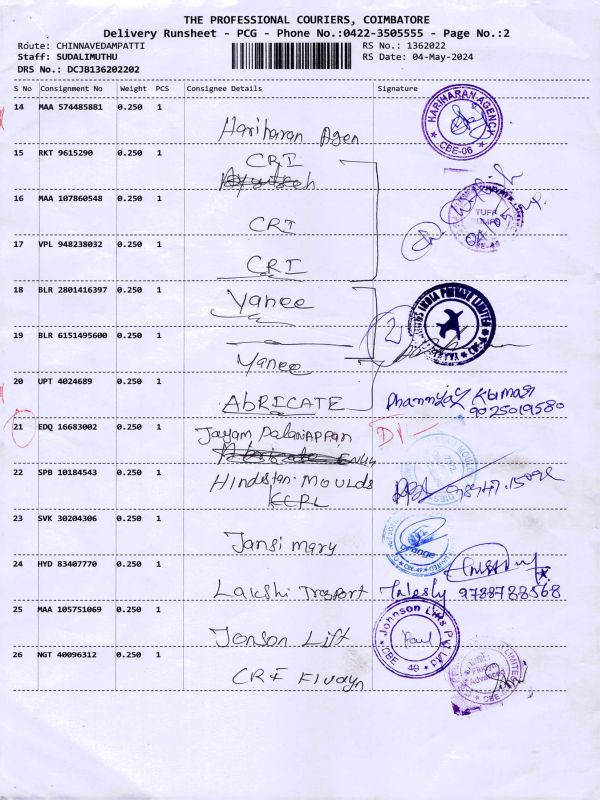 THE PROFESSIONAL COURIERS, COIMBATORE
Delivery Runsheet - PCG - Phone No.:0422-3505555 - Page No.:2
Route: CHINNAVEDAMPATTI
RS No.: 1362022
Staff: SUDALIMUTHU
RS Date: 04-May-2024
DRS No.: DCJB136202202
S No Consignment No Weight PCS Consignee Details Signature
14 MAA 574485881 0.250 1
Hariharan Agen
HARIHARAN AGENCY
CBE-06
15 RKT 9615290 0.250 1
CRI
16 MAA 107860548 0.250 1
CRI
TUFF
17 VPL 948238032 0.250 1
CRI
18 BLR 2801416397 0.250 1
Yanee
INDIA PRIVATE LIMITED
2
19 BLR 6151495600 0.250 1
Yanee
20 UPT 4024689 0.250 1
ABRICATE
Kumar
9025019580
21 EDQ 16683002 0.250 1
Jayam Palaniappan
22 SPB 10184543 0.250 1
Hindustan MOULDS
23 SVK 30204306 0.250 1
Jansi mary
Orange
24 HYD 83407770 0.250 1
Lakshi Trasport
9788788568
25 MAA 105751069 0.250 1
Jonson Lift
Johnson Lifts Pvt Ltd
Paul
CBE 49
26 NGT 40096312 0.250 1
CRI Fluayn
Fluid
Advanced